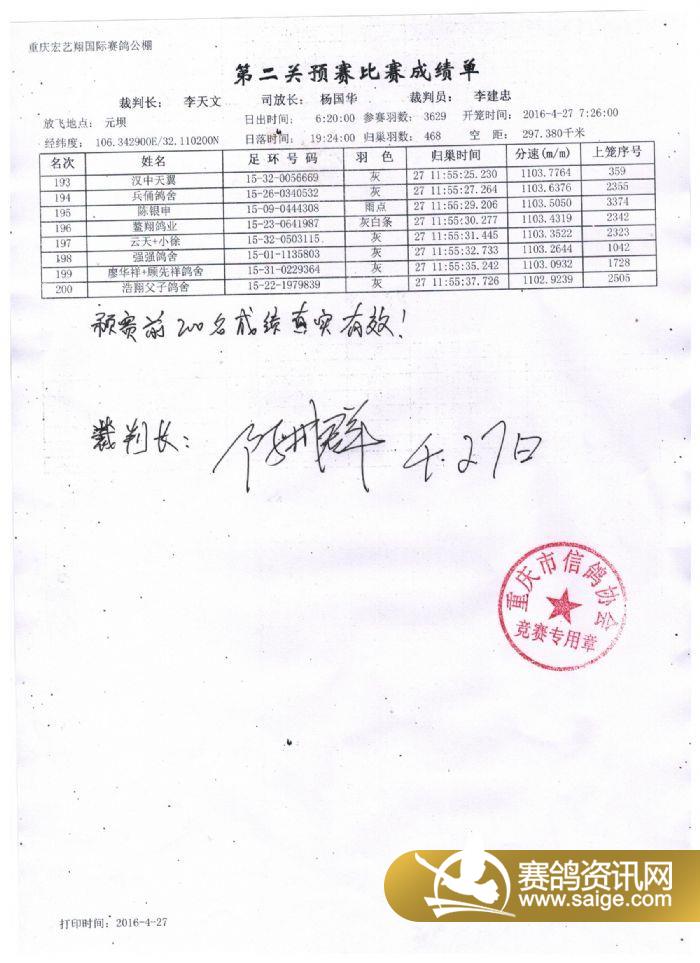 重庆宏艺翔国际赛鸽公棚
第二关预赛比赛成绩单
裁判长： 李天文 司放长： 杨国华 裁判员： 李建忠
放飞地点： 元坝 日出时间： 6:20:00 参赛羽数： 3629 开笼时间： 2016-4-27 7:26:00
经纬度： 106.342900E/32.110200N 日落时间： 19:24:00 归巢羽数： 468 空 距： 297.380千米
名次 姓名 足环号码 羽色 归巢时间 分速(m/m) 上笼序号
193 汉中天翼 15-32-0056669 灰 27 11:55:25.230 1103.7764 359
194 兵俑鸽舍 15-26-0340532 灰 27 11:55:27.264 1103.6376 2355
195 陈银申 15-09-0444308 雨点 27 11:55:29.206 1103.5050 3374
196 鳌翔鸽业 15-23-0641987 灰白条 27 11:55:30.277 1103.4319 2342
197 云天+小徐 15-32-0503115 灰 27 11:55:31.445 1103.3522 2323
198 强强鸽舍 15-01-1135803 灰 27 11:55:32.733 1103.2644 1042
199 廖华祥+顾先祥鸽舍 15-31-0229364 灰 27 11:55:35.242 1103.0932 1728
200 浩翔父子鸽舍 15-22-1979839 灰 27 11:55:37.726 1102.9239 2505
预赛前200名成绩真实有效！
裁判长： 群 4.27日
重庆市信鸽协会
竞赛专用章
赛鸽资讯网
www.saige.com
打印时间：2016-4-27